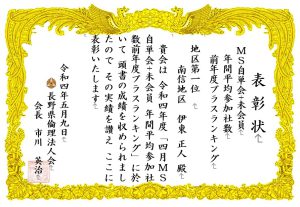 表彰状
MS自単会+未会員
年間平均参加社数
前年度プラスランキング
地区第一位
南信地区 伊東 正人 殿
貴会は 令和四年度「四月MS
自単会+未会員 年間平均参加社
数前年度プラスランキング」に於
いて 頭書の成績を収められまし
たので その実績を讃え ここに
表彰いたします
令和四年五月九日
長野県倫理法人会
会長 市川 英治